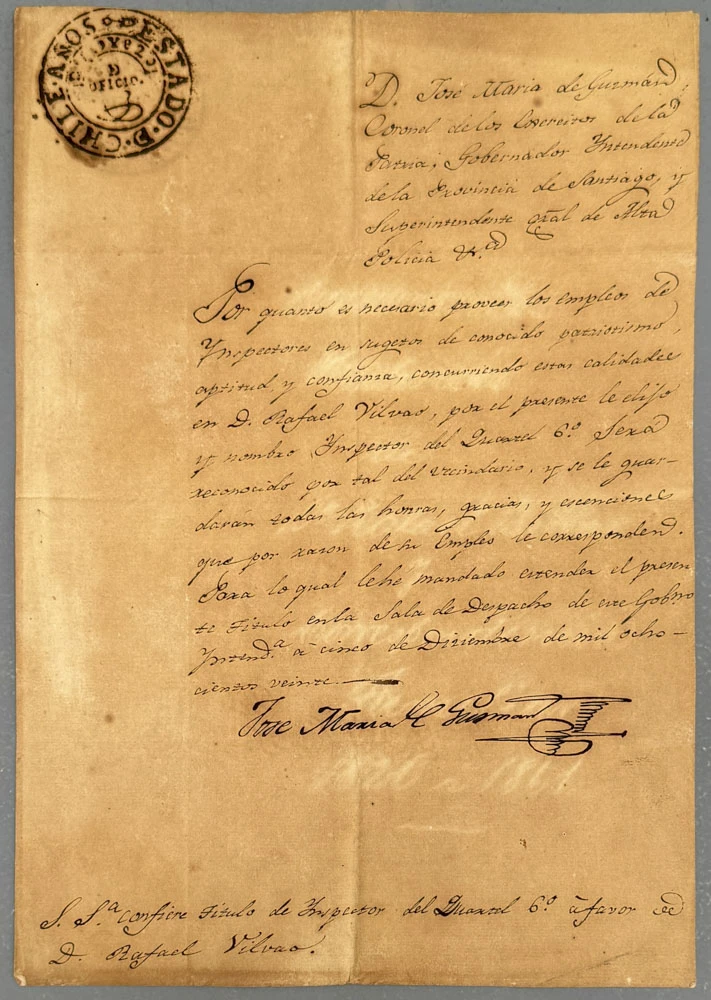 ESTADO D CHILE AÑOS D
OFICIO.
D. Jose Maria de Guzman,
Coronel de los Exercitos de la
Patria; Gobernador Yntendente
de la Provincia de Santiago, y
Superintendente gral de Alta
Policia &.
Por quanto es necesario proveer los empleos de
Ynspectores en sugetos de conocido patriotismo,
aptitud, y confianza, concurriendo estas calidades
en D. Rafael Vilvao, por el presente le elijo
y nombro Ynspector del Quartel 6.º Sera
reconocido por tal del vecindario, y se le guar-
darán todas las honras, gracias, y escenciones
que por razon de su Empleo le corresponden.
Para lo qual le hé mandado extender el presen
te Titulo en la Sala de Despacho de este Gobno
Yntend.ª à cinco de Diziembre de mil ocho-
cientos veinte.
Jose Maria de Guzman
S. S.ª confiere Titulo de Ynspector del Quartel 6.º à favor de
D. Rafael Vilvao.